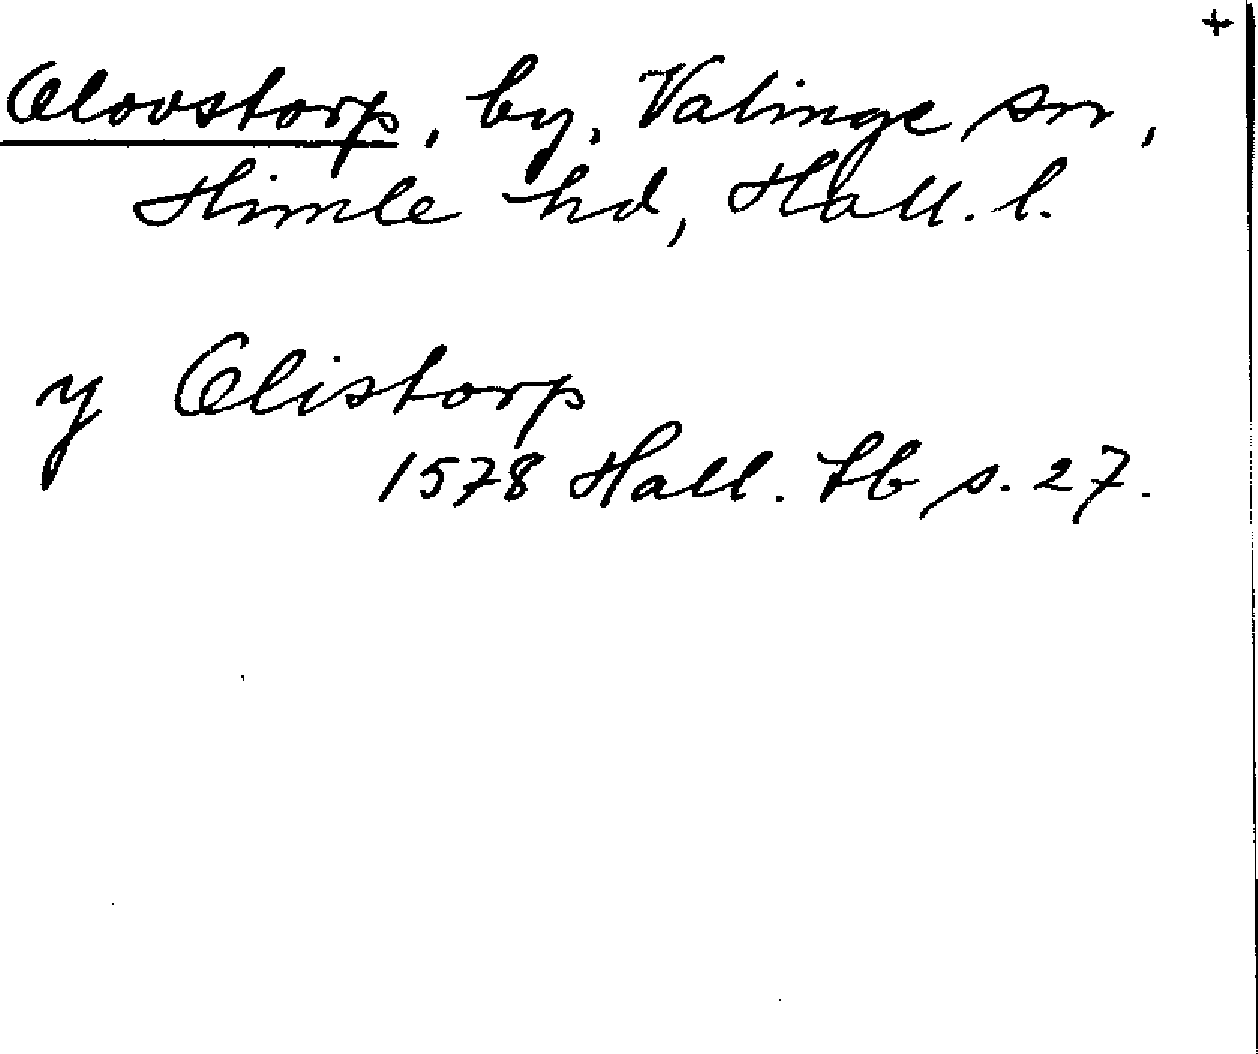 +
Olovstorp, by, Valinge sn,
Himle hd, Hall. l.
y Olistorp
1578 Hall. Lb s. 27.